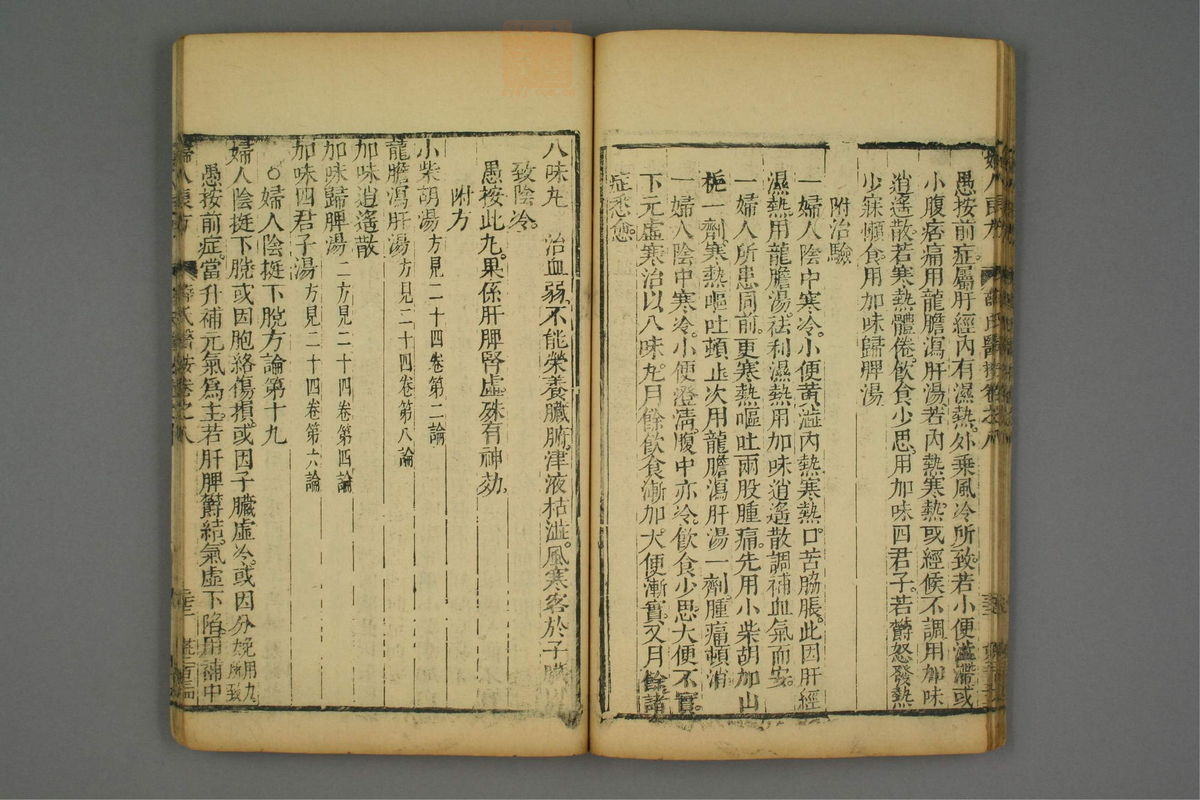 愚按前症屬肝經内有濕熱。外乘風冷所致。若小便澁滯。或
小腹痞痛用龍膽瀉肝湯。若内熱寒熱。或經候不調用加味
逍遙散。若寒熱體倦。飲食少思。用加味四君子。若欝怒發熱
少寐懶食用加味歸脾湯
附治驗
一婦人陰中寒冷。小便黄澁内熱寒熱。口苦脇脹。此因肝經
濕熱。用龍膽湯。祛利濕熱用加味逍遙散調補血氣而安。
一婦人所患同前。更寒熱嘔吐兩股腫痛。先用小柴胡加山
梔一劑。寒熱嘔吐頓止次用龍膽瀉肝湯一劑。腫痛頓消。
一婦人陰中寒冷。小便澄清。腹中亦冷。飲食少思大便不實。
下元虛寒治以八味丸。月餘飲食漸加。大便漸實。又月餘諸
症悉愈。
八味丸　治血弱。不能榮養臟腑。津液枯澁。風寒客於子臟
致陰冷。
愚按此丸。果係肝脾腎虛。殊有神効。
附方
小柴胡湯方見二十四卷第二論
龍膽瀉肝湯方見二十四卷第八論
加味逍遙散
加味歸脾湯二方見二十四卷第四論
加味四君子湯方見二十四卷第六論
○婦人陰挺下脫方論第十九
婦人陰挺下脫或因胞絡傷損。或因子臟虛冷。或因分娩用力所致
愚按前症。當升補元氣爲主。若肝脾欝結。氣虛下陷。用補中
婦人良方　薛氏醫按卷之八